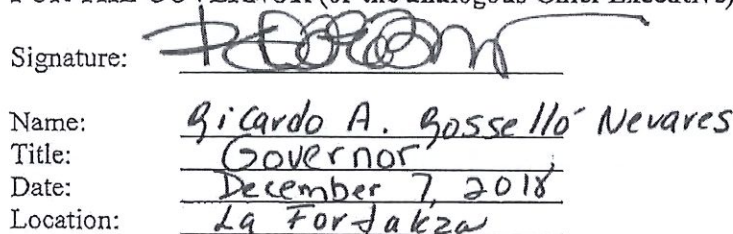 FOR THE GOVERNOR (or the analogous Chief Executive)
Signature:
Name: Ricardo A. Rosselló Nevares
Title: Governor
Date: December 7, 2018
Location: La Fortaleza